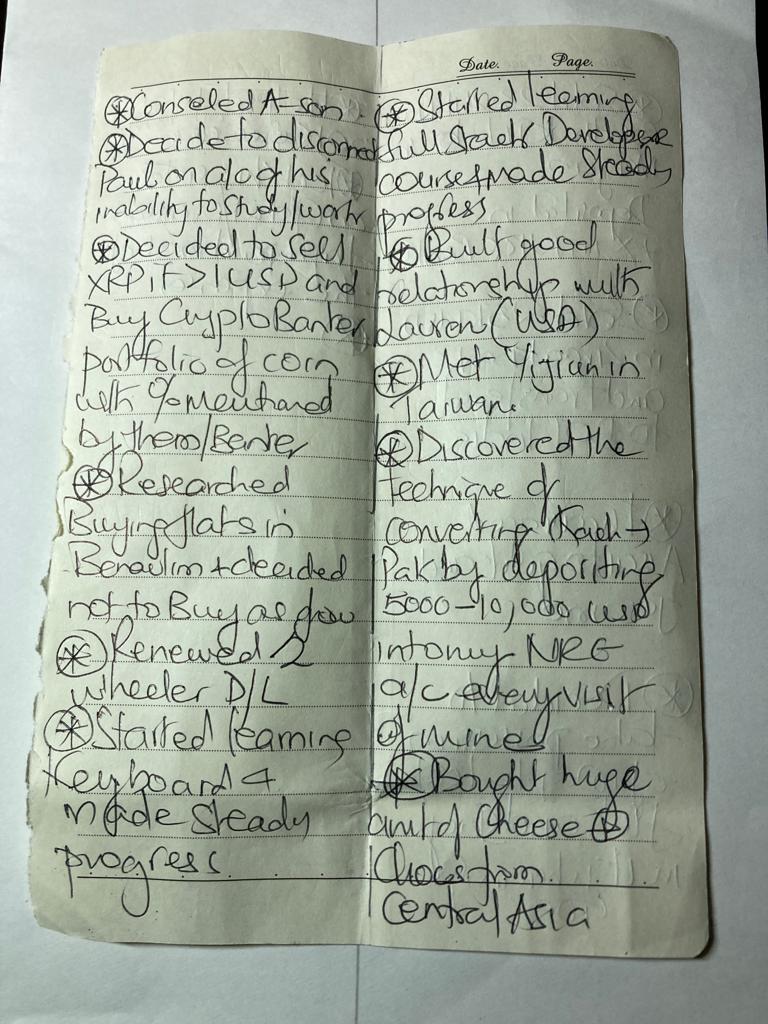 ⊛ Conseled A-son
⊛ Decide to disconnect
Paul on a/c of his
inability to study/work
⊛ Decided to sell
XRP if > 1 USD and
Buy Crypto Banter
portfolio of coin
with % mentioned
by them/Banter
⊛ Researched
Buying flats in
Benaulim + decided
not to Buy as of now
⊛ Renewed 2
wheeler D/L
⊛ Started learning
Keyboard &
made steady
progress
Date. Page.
⊛ Started learning
full stack Developer
course + made steady
progress
⊛ Built good
relationship with
Lauren (USA)
⊛ Met Yijiun in
Taiwan.
⊛ Discovered the
technique of
converting →
Pak by depositing
5000-10,000 USD
into my NRE
a/c every visit
of mine
⊛ Bought huge
amt of Cheese ⊕
Chocs from
Central Asia